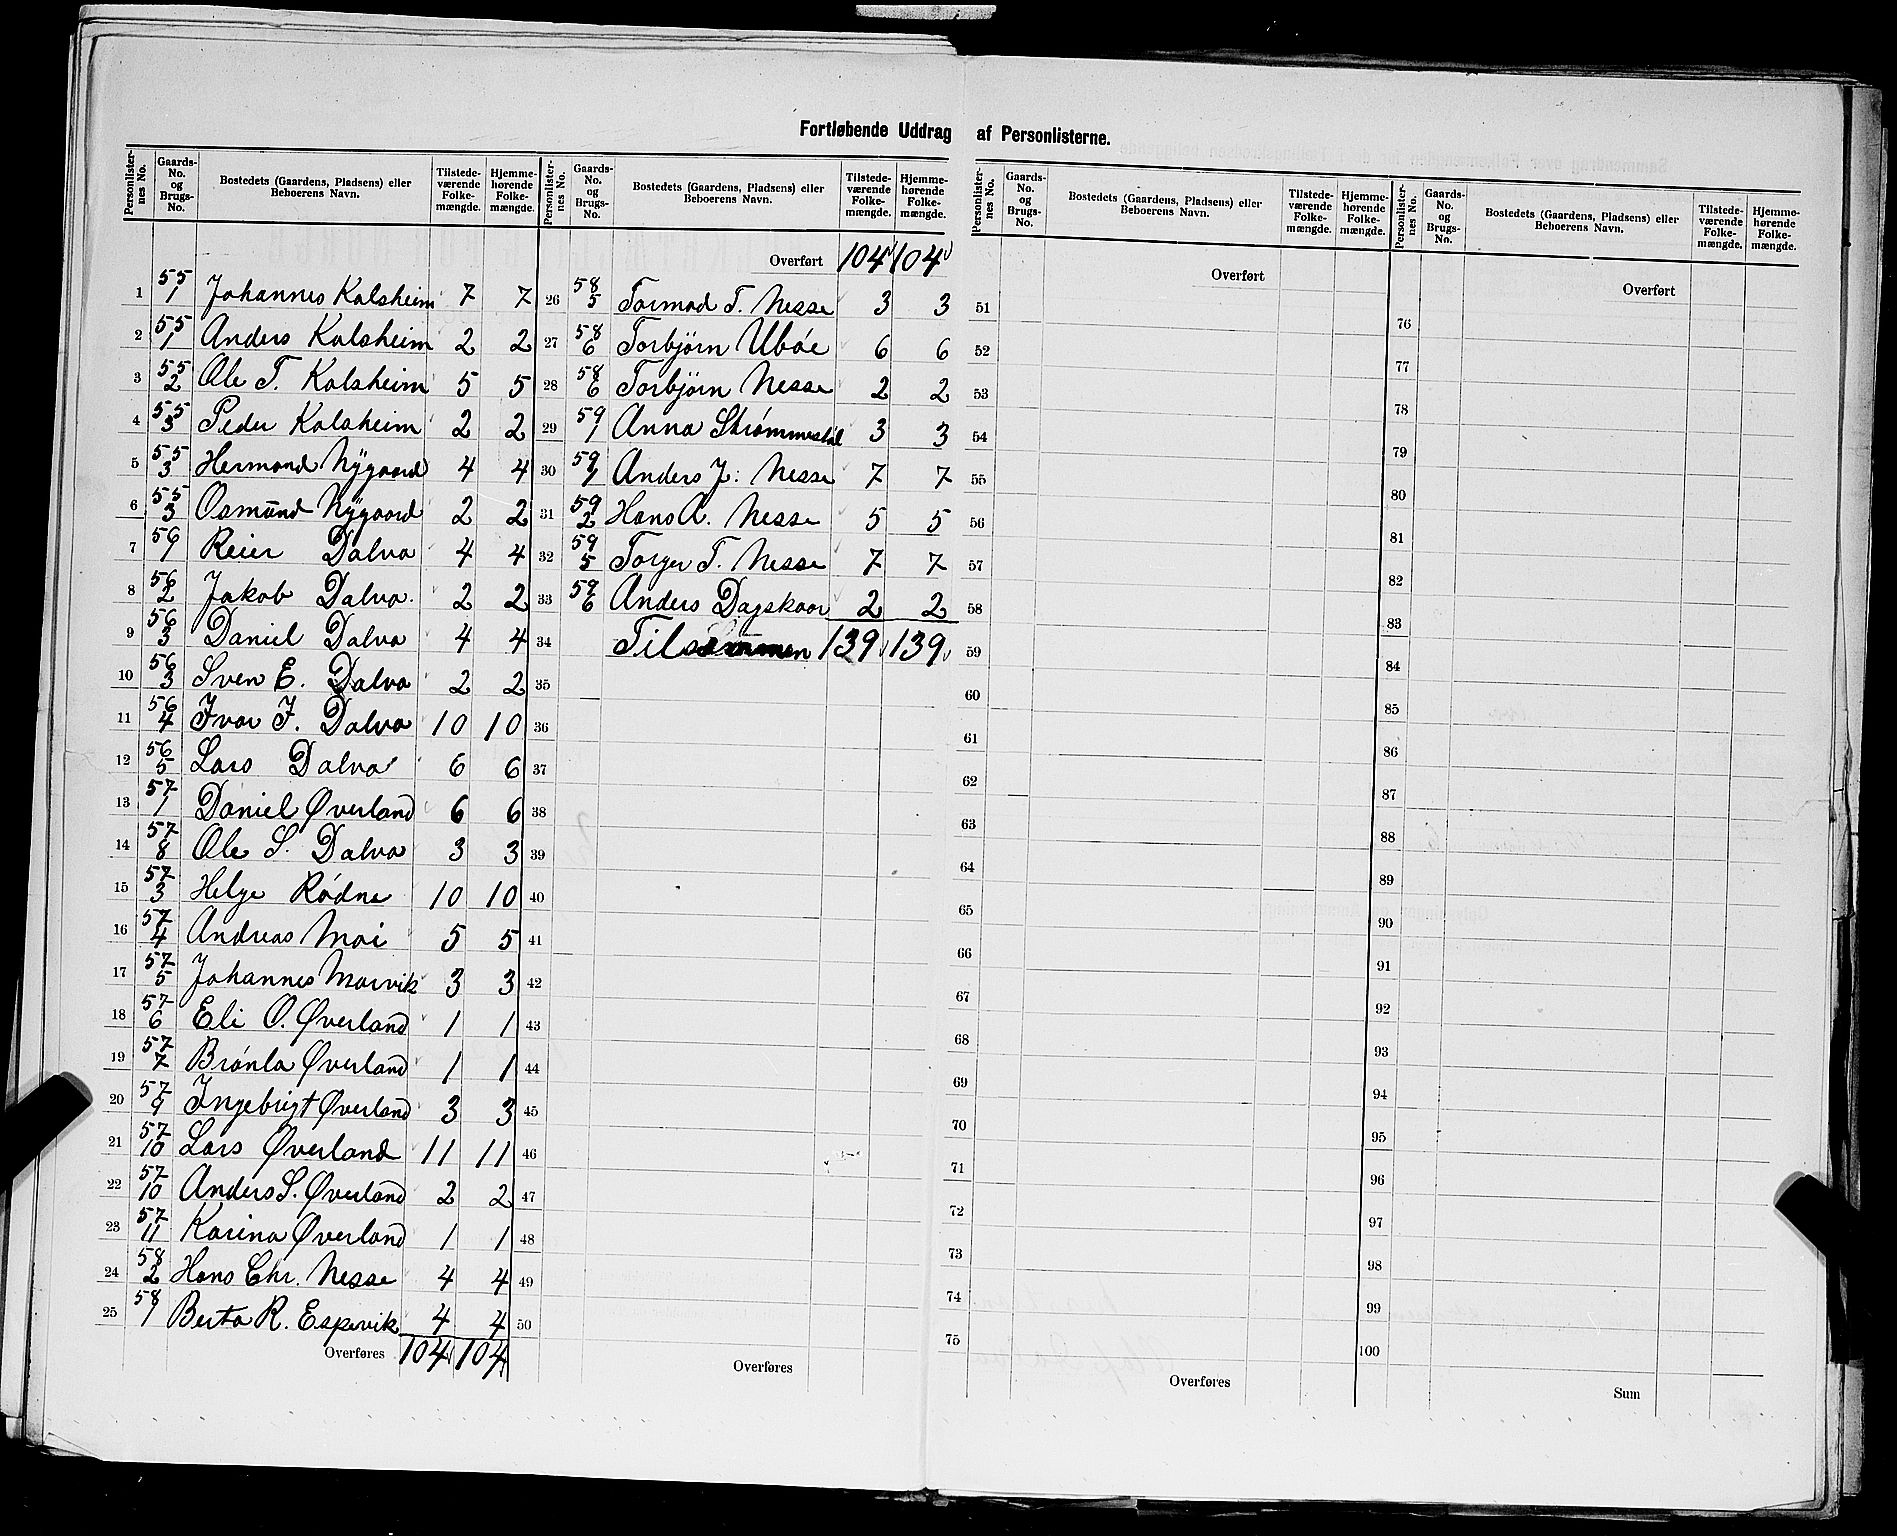 Fortløbende Uddrag af Personlisterne.
Personlisternes No. | Gaards-No. og Brugs-No. | Bostedets (Gaardens, Pladsens) eller Beboerens Navn. | Tilstedeværende Folkemængde. | Hjemmehørende Folkemængde.
1 | 55/1 | Johannes Kalsheim | 7 | 7
2 | 55/1 | Anders Kalsheim | 2 | 2
3 | 55/2 | Ole T. Kalsheim | 5 | 5
4 | 55/3 | Peder Kalsheim | 2 | 2
5 | 55/3 | Hermand Nÿgaard | 4 | 4
6 | 55/3 | Osmund Nÿgaard | 2 | 2
7 | 56/1 | Reier Dalva | 4 | 4
8 | 56/2 | Jakob Dalva. | 2 | 2
9 | 56/3 | Daniel Dalva | 4 | 4
10 | 56/3 | Sven E. Dalva | 2 | 2
11 | 56/4 | Ivar I. Dalva | 10 | 10
12 | 56/5 | Lars Dalva | 6 | 6
13 | 57/1 | Daniel Øverland | 6 | 6
14 | 57/8 | Ole S. Dalva | 3 | 3
15 | 57/3 | Helge Rødne | 10 | 10
16 | 57/4 | Andreas Moi | 5 | 5
17 | 57/5 | Johannes Marvik | 3 | 3
18 | 57/6 | Eli O. Øverland | 1 | 1
19 | 57/7 | Brønla Øverland | 1 | 1
20 | 57/9 | Ingebrigt Øverland | 3 | 3
21 | 57/10 | Lars Øverland | 11 | 11
22 | 57/10 | Anders S. Øverland | 2 | 2
23 | 57/11 | Karina Øverland | 1 | 1
24 | 58/2 | Hans Chr. Nesse | 4 | 4
25 | 58/1 | Berta R. Espevik | 4 | 4
Overføres 104 104
Personlisternes No. | Gaards-No. og Brugs-No. | Bostedets (Gaardens, Pladsens) eller Beboerens Navn. | Tilstedeværende Folkemængde. | Hjemmehørende Folkemængde.
Overført 104 104
26 | 58/5 | Tormod T. Nesse | 3 | 3
27 | 58/6 | Torbjörn Ubøe | 6 | 6
28 | 58/6 | Torbjörn Nesse | 2 | 2
29 | 59/1 | Anna Strømmestøl | 3 | 3
30 | 59/1 | Anders J: Nesse | 7 | 7
31 | 59/2 | Hans A. Nesse | 5 | 5
32 | 59/5 | Torger T. Nesse | 7 | 7
33 | 59/6 | Anders Dagskaar | 2 | 2
34 Tilsammen 139 139
35
36
37
38
39
40
41
42
43
44
45
46
47
48
49
50
Overføres
Personlisternes No. | Gaards-No. og Brugs-No. | Bostedets (Gaardens, Pladsens) eller Beboerens Navn. | Tilstedeværende Folkemængde. | Hjemmehørende Folkemængde.
Overført
51
52
53
54
55
56
57
58
59
60
61
62
63
64
65
66
67
68
69
70
71
72
73
74
75
Overføres
Personlisternes No. | Gaards-No. og Brugs-No. | Bostedets (Gaardens, Pladsens) eller Beboerens Navn. | Tilstedeværende Folkemængde. | Hjemmehørende Folkemængde.
Overført
76
77
78
79
80
81
82
83
84
85
86
87
88
89
90
91
92
93
94
95
96
97
98
99
100
Sum